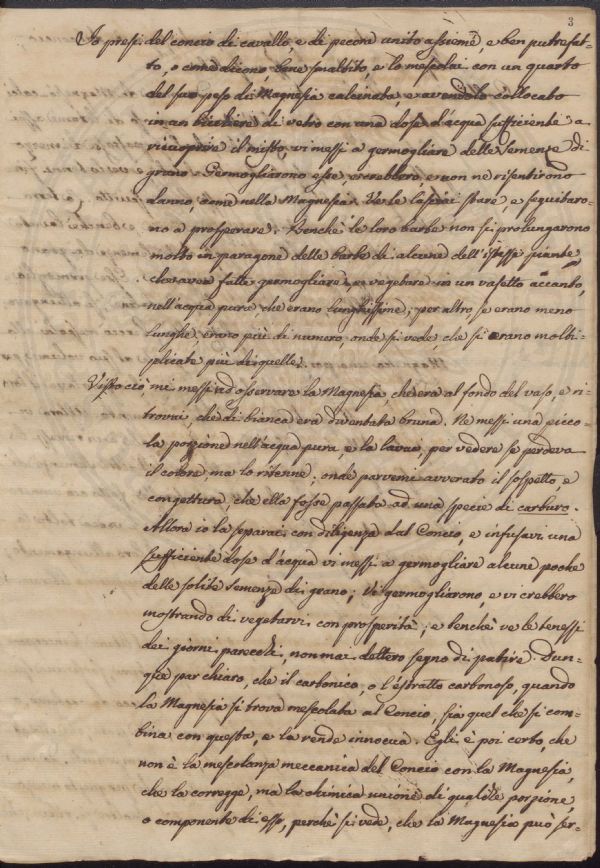 3
Io presi del concio di cavallo, e di pecore unito assieme, e ben putrefat-
to, o come dicono bene smaltito, e lo mescolai con un quarto
del suo peso di Magnesia calcinata, e avendolo collocato
in un bicchiere di vetro con una dose d'acqua sufficiente a
ricoprire il misto, vi messi a germogliare delle semenze di
grano. Germogliarono esse, e crebbero, e non ne risentirono
danno, come nella Magnesia. Ve le lasciai stare, e seguitaro-
no a prosperare. Benchè le loro barbe non si prolungarono
molto in paragone delle barbe di alcune dell'istesse piante,
che avea fatte germogliare, e vegetare in un vasetto accanto,
nell'acqua pura che erano lunghissime; per altro, se erano meno
lunghe, erano più di numero, onde si vede che si erano molti-
plicate più di quelle.
Visto ciò mi messi ad osservare la Magnesia che era al fondo del vaso, e ri-
trovai, che di bianca era diventata bruna. Ne messi una picco-
la porzione nell'acqua pura, e la lavai, per vedere se perdeva
il colore, ma lo ritenne; onde parvemi avverato il sospetto, e
congettura, che ella fosse passata ad una specie di carburo.
Allora io la separai con diligenza dal Concio, e infusavi una
sufficiente dose d'acqua vi messi a germogliare alcune poche
delle solite semenze di grano; Vi germogliarono, e vi crebbero
mostrando di vegetarvi con prosperità; e benchè ve le tenessi
dei giorni parecchi, non mai dettero segno di patire. Dun-
que par chiaro, che il carbonico, o l'estratto carbonoso, quando
la Magnesia si trova mescolata al Concio, sia quel che si com-
bina con questa, e la rende innocua. Egli è poi certo, che
non è la mescolanza meccanica del Concio con la Magnesia,
che la corregge, ma la chimica unione di qualche porzione,
o componente di esso, perchè si vede, che la Magnesia può ser-